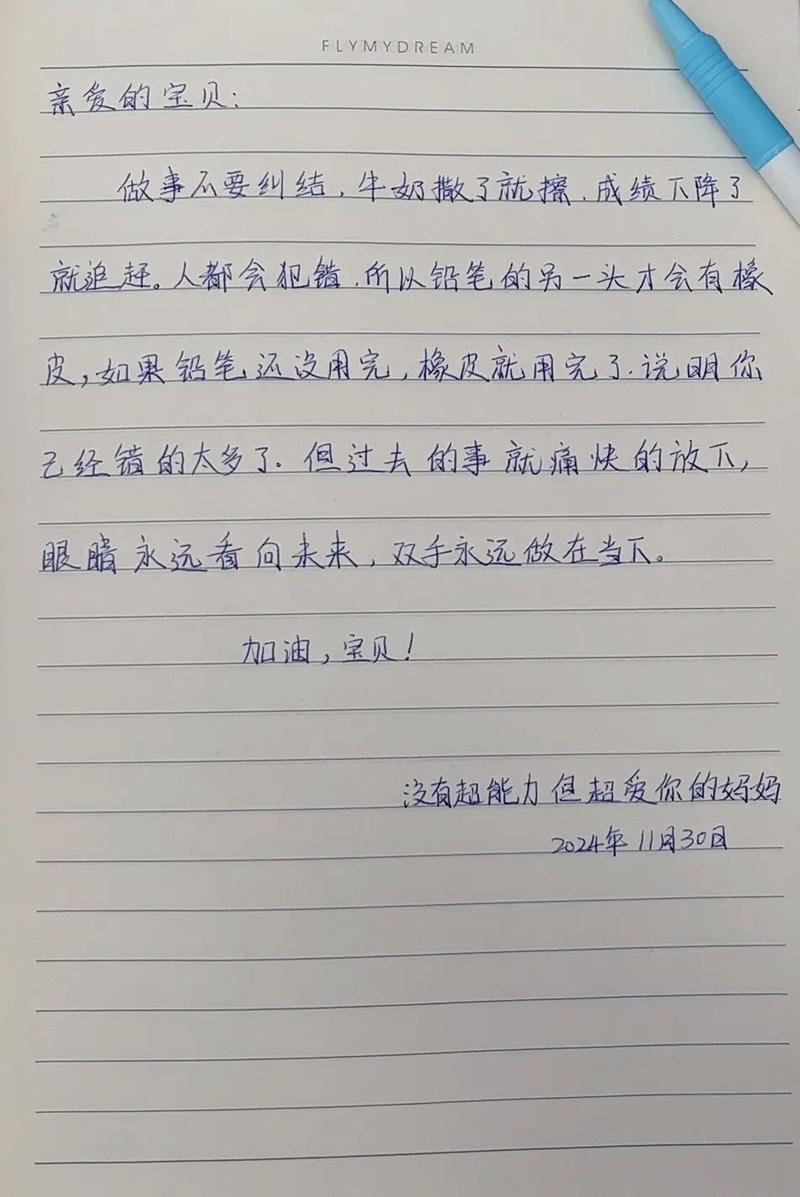 FLYMYDREAM
亲爱的宝贝:
做事不要纠结,牛奶撒了就擦,成绩下降了
就追赶。人都会犯错,所以铅笔的另一头才会有橡
皮,如果铅笔还没用完,橡皮就用完了.说明你
已经错的太多了.但过去的事就痛快的放下,
眼睛永远看向未来,双手永远做在当下。
加油,宝贝!
没有超能力但超爱你的妈妈
2024年11月30日